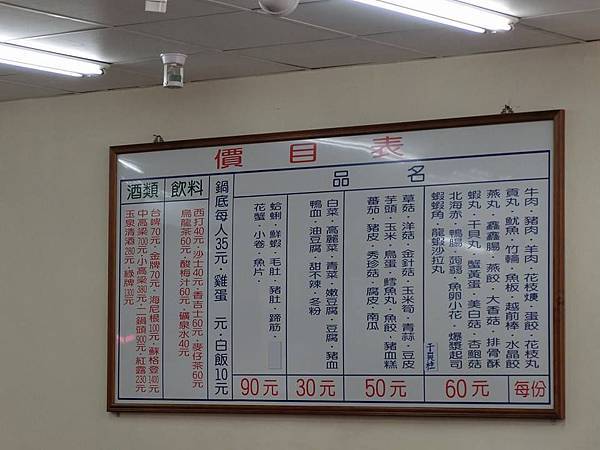 價目表
品名
每份
牛肉·豬肉·羊肉·花枝焿·蛋餃·花枝丸
貢丸·魷魚·竹輪·魚板·越前棒·水晶餃
燕丸·鑫鑫腸·燕餃·大香菇·排骨酥
蝦丸·干貝丸·蟹黃蛋·美白菇·杏鮑菇
北海赤·鴨腸·蒟蒻·魚卵小花·爆漿起司
蝦蝦角·龍蝦沙拉丸
60元
草菇·洋菇·金針菇·玉米筍·青蒜·豆皮
芋頭·玉米·鳥蛋·鱈魚丸·魚餃·豬血糕
番茄·豬皮·秀珍菇·腐皮·南瓜
50元
白菜·高麗菜·青菜·嫩豆腐·豆腐·豬血
鴨血·油豆腐·甜不辣·冬粉
30元
蛤蜊·鮮蝦·毛肚·豬肚·蹄筋·
花蟹·小卷·魚片·
90元
鍋底每人35元·雞蛋 元·白飯10元
飲料
西打40元·沙士40元·香吉士60元·麥仔茶60元
烏龍茶60元·酸梅汁60元·礦泉水40元
酒類
台啤70元·金牌70元·海尼根100元·蘇格登1400元
中高粱700元·小高粱380元·二鍋頭900元·紅露230元
玉泉清酒280元·綠牌1300元